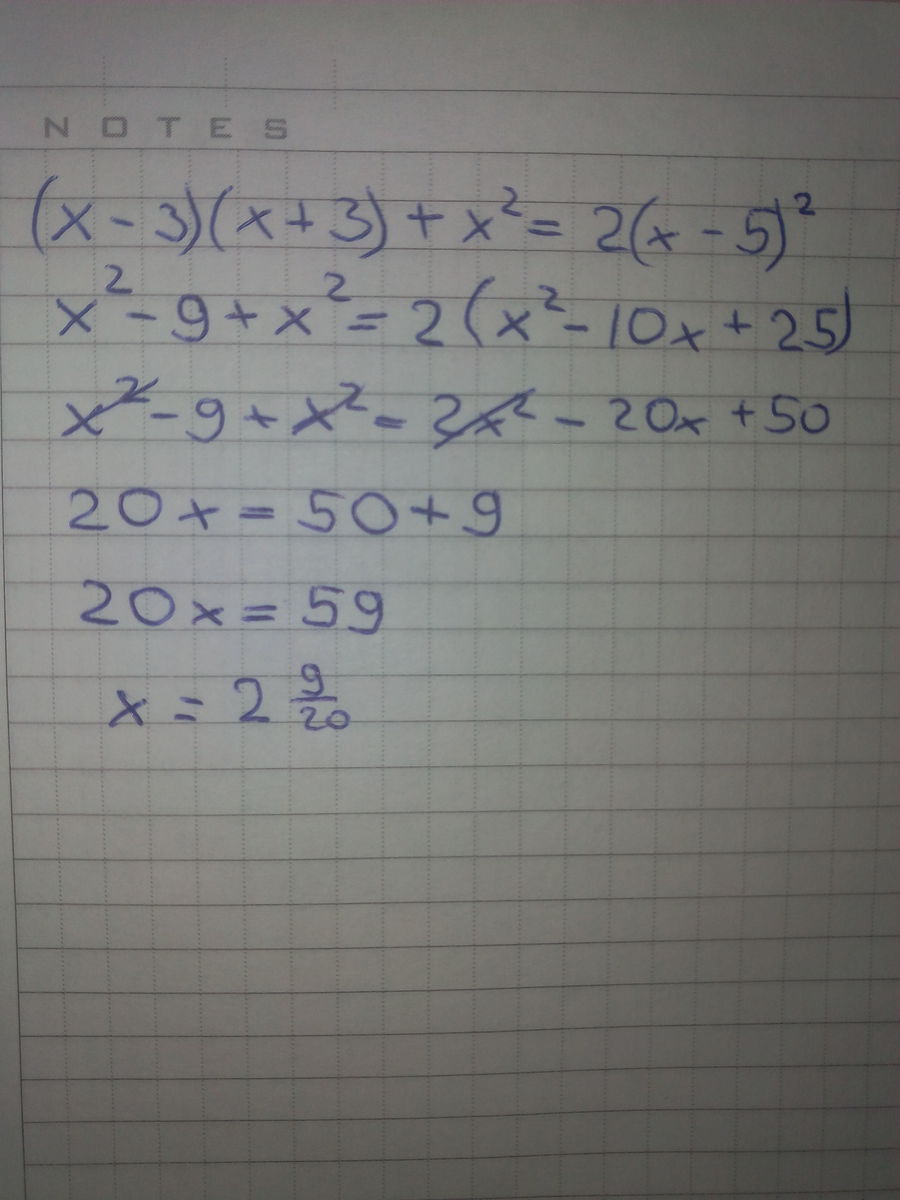 NOTES
(x - 3)(x + 3) + x² = 2(x - 5)²
x² - 9 + x² = 2(x² - 10x + 25)
x² - 9 + x² = 2x² - 20x + 50
20x = 50 + 9
20x = 59
x = 2 9/20